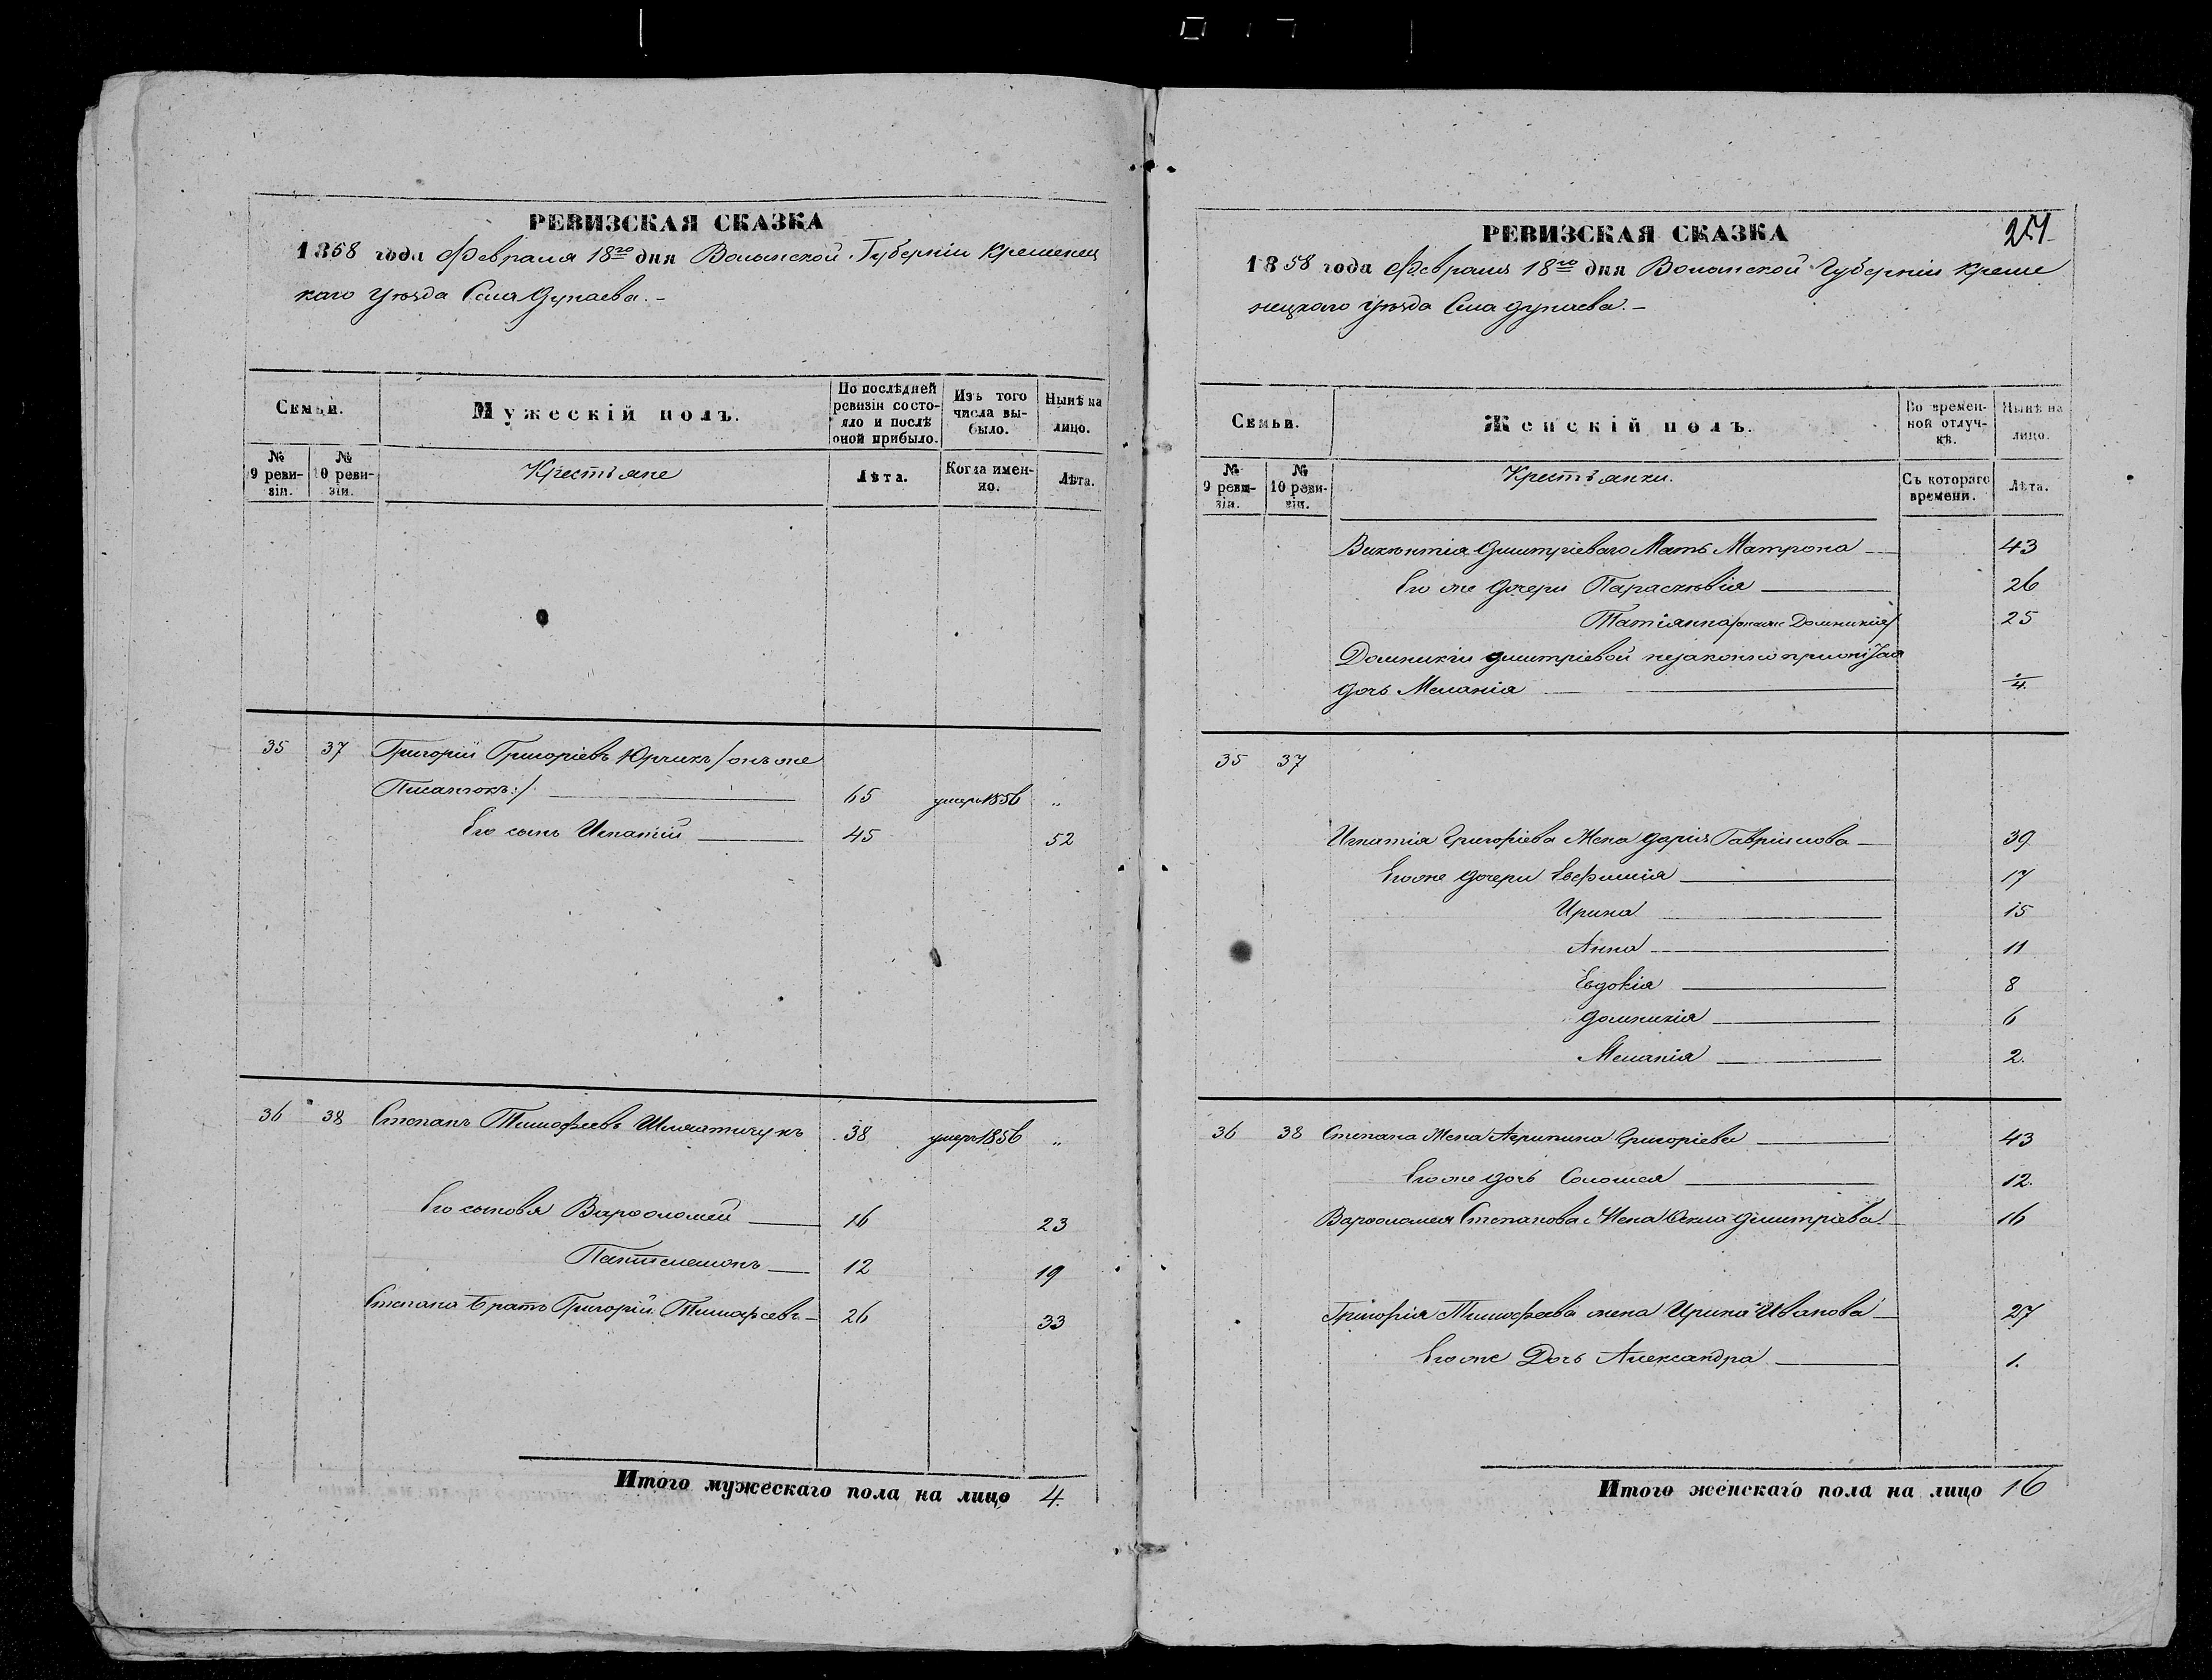 РЕВИЗСКАЯ СКАЗКА
1858 года Февраля 18го дня Волынской Губерніи Кременец
каго Уѣзда Села Дунаева. –
Семьи.
Мужескій полъ.
По послѣдней ревизіи состояло и послѣ оной прибыло.
Изъ того числа выбыло.
Нынѣ на лицо.
№ 9 ревизіи.
№ 10 ревизіи.
Крестьяне
Лѣта.
Когда именно.
Лѣта.
35 37 Григорій Григоріевъ Юрчикъ /онъ же
Писанюкъ:/ 65 умеръ 1856 "
Его сынъ Игнатій 45 52
36 38 Степанъ Тимофеевъ 38 умеръ 1856 "
Его сыновья Варѳоломей 16 23
Пантелемонъ 12 19
Степана братъ Григорій Тимофеевъ 26 33
Итого мужескаго пола на лицо 4
27
РЕВИЗСКАЯ СКАЗКА
1858 года Февраля 18го дня Волынской Губерніи Креме
нецкаго Уѣзда Села Дунаева. –
Семьи.
Женскій полъ.
Во временной отлучкѣ.
Нынѣ на лицо.
№ 9 ревизіи.
№ 10 ревизіи.
Крестьянки.
Съ котораго времени.
Лѣта.
Викентія Дмитріеваго Мать Матрона 43
Его же дочери Параскевія 26
Татіанна /онаже Домникія/ 25
Домникіи Дмитріевой незаконно прижитая
дочь Меланія 1/4.
35 37
Игнатія Григоріева Жена Дарія Гавріилова 39
Его же дочери Евфимія 17
Ирина 15
Анна 11
Евдокія 8
Домникія 6
Меланія 2.
36 38 Степана Жена Агрипина Григоріева 43
Его же дочь Соломія 12.
Варѳоломея Степанова Жена Ѳекла Дмитріева 16
Григорія Тимофеева жена Ирина Иванова 27
Его же Дочь Александра 1.
Итого женскаго пола на лицо 16